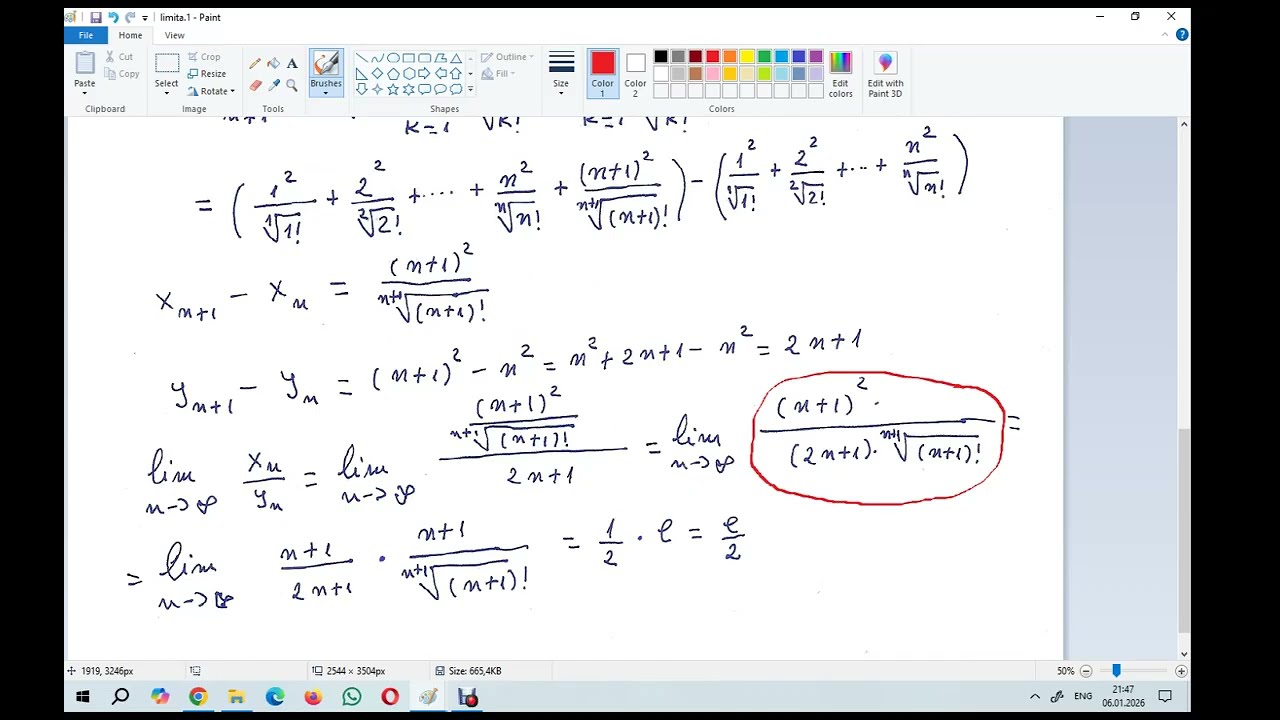 limita.1 - Paint
File Home View
Paste Cut Copy Clipboard
Select Crop Resize Rotate Image
Tools
Brushes
Outline Fill Shapes
Size
Color 1 Color 2 Edit colors Colors
Edit with Paint 3D
n+1 K=1 √K! K=1 √K!
= (1²/¹√1! + 2²/²√2! + ···· + n²/ⁿ√n! + (n+1)²/ⁿ⁺¹√(n+1)!) − (1²/¹√1! + 2²/²√2! + ··· + n²/ⁿ√n!)
xₙ₊₁ − xₙ = (n+1)²/ⁿ⁺¹√(n+1)!
yₙ₊₁ − yₙ = (n+1)² − n² = n² + 2n+1 − n² = 2n+1
lim n→∞ xₙ/yₙ = lim n→∞ ((n+1)²/ⁿ⁺¹√(n+1)!)/(2n+1) = lim n→∞ (n+1)² · /((2n+1) · ⁿ⁺¹√(n+1)!) =
= lim n→∞ (n+1)/(2n+1) · (n+1)/ⁿ⁺¹√(n+1)! = 1/2 · e = e/2
1919, 3246px 2544 × 3504px Size: 665,4KB 50%
ENG 21:47
06.01.2026